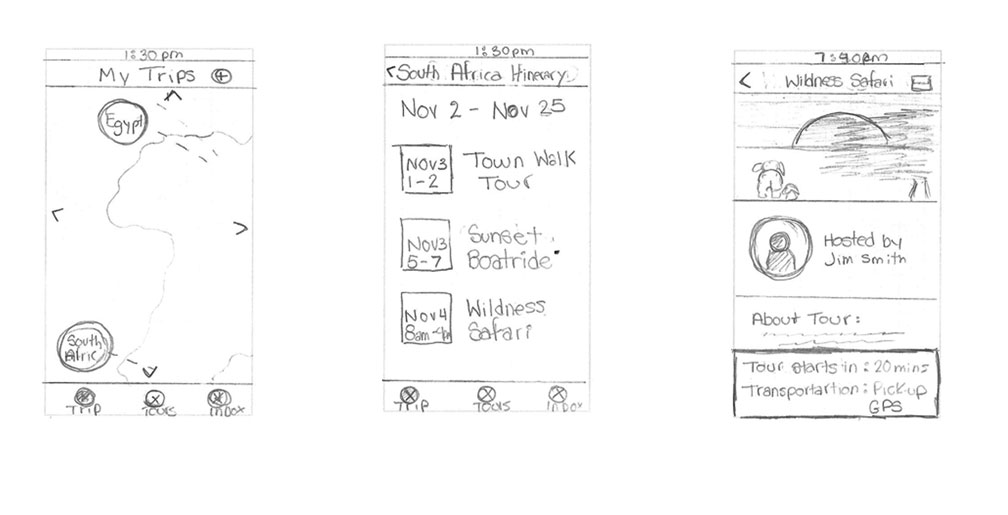 1:30 pm
My Trips
Egypt
South
Afric
Trip
Tours
Inbox
1:30pm
South Africa Itinerary
Nov 2 - Nov 25
Nov3
1-2
Town Walk
Tour
Nov3
5-7
Sunset
Boatride
Nov4
8am-4pm
Wildness
Safari
Trip
Tours
Inbox
7:40am
Wildness Safari
Hosted by
Jim Smith
About Tour:
Tour starts in : 20 mins
Transportartion : Pick-up
GPS